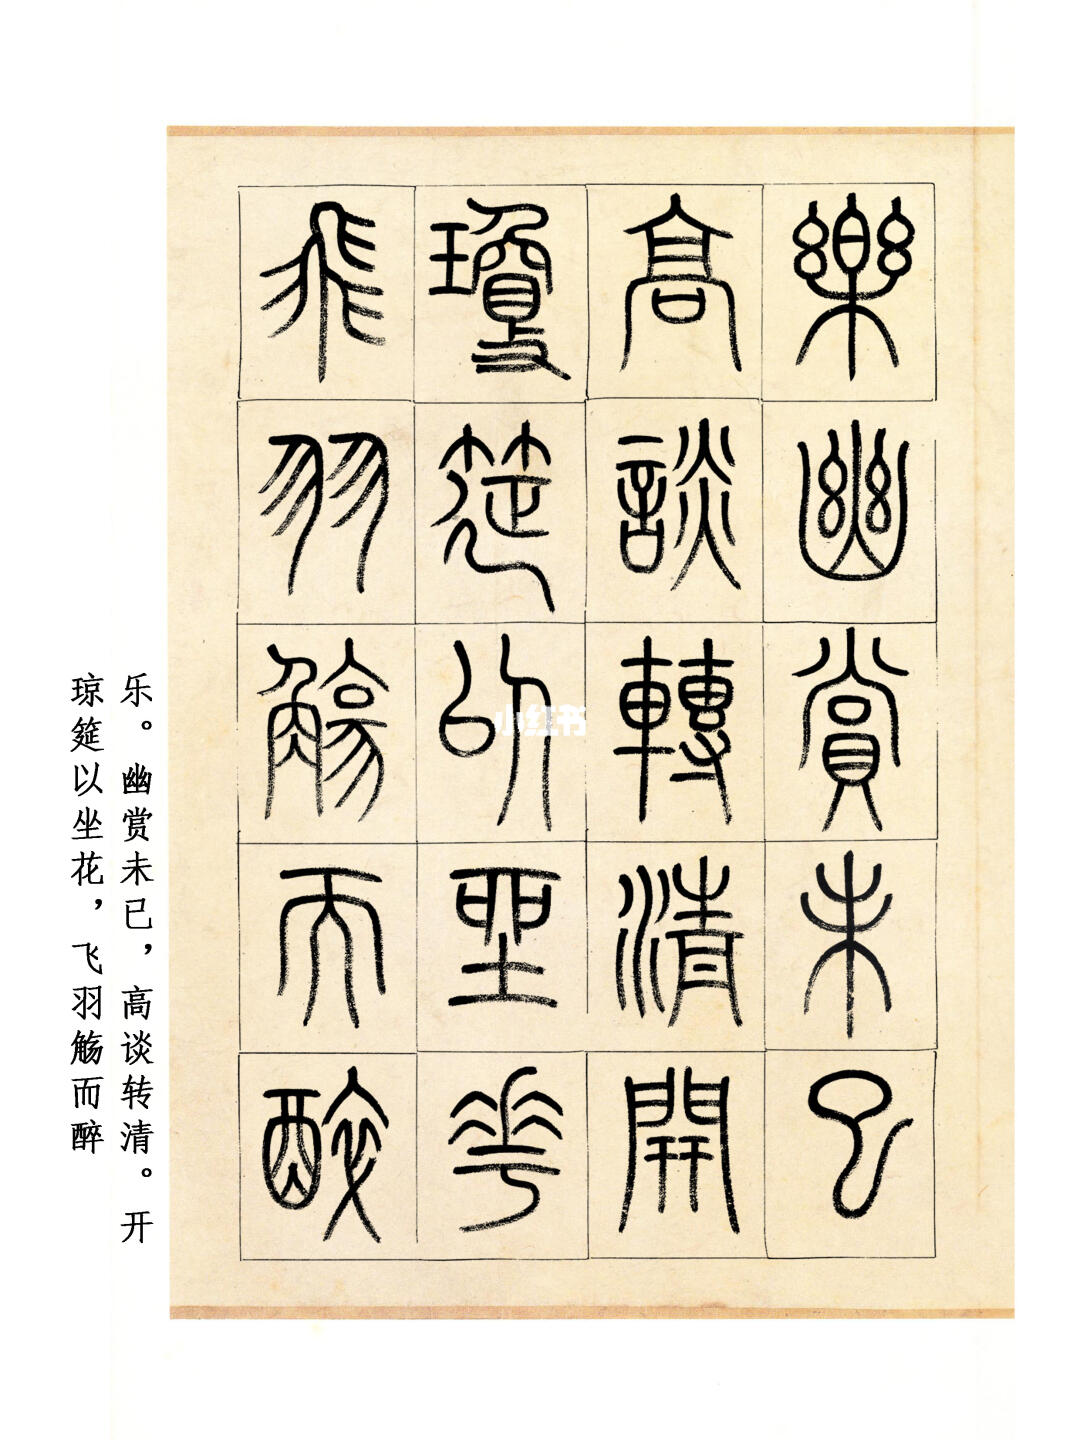 樂幽賞未已
高談轉清開
瓊筵以坐花
飛羽觴而醉
乐。幽赏未已，高谈转清。开
琼筵以坐花，飞羽觞而醉
小红书